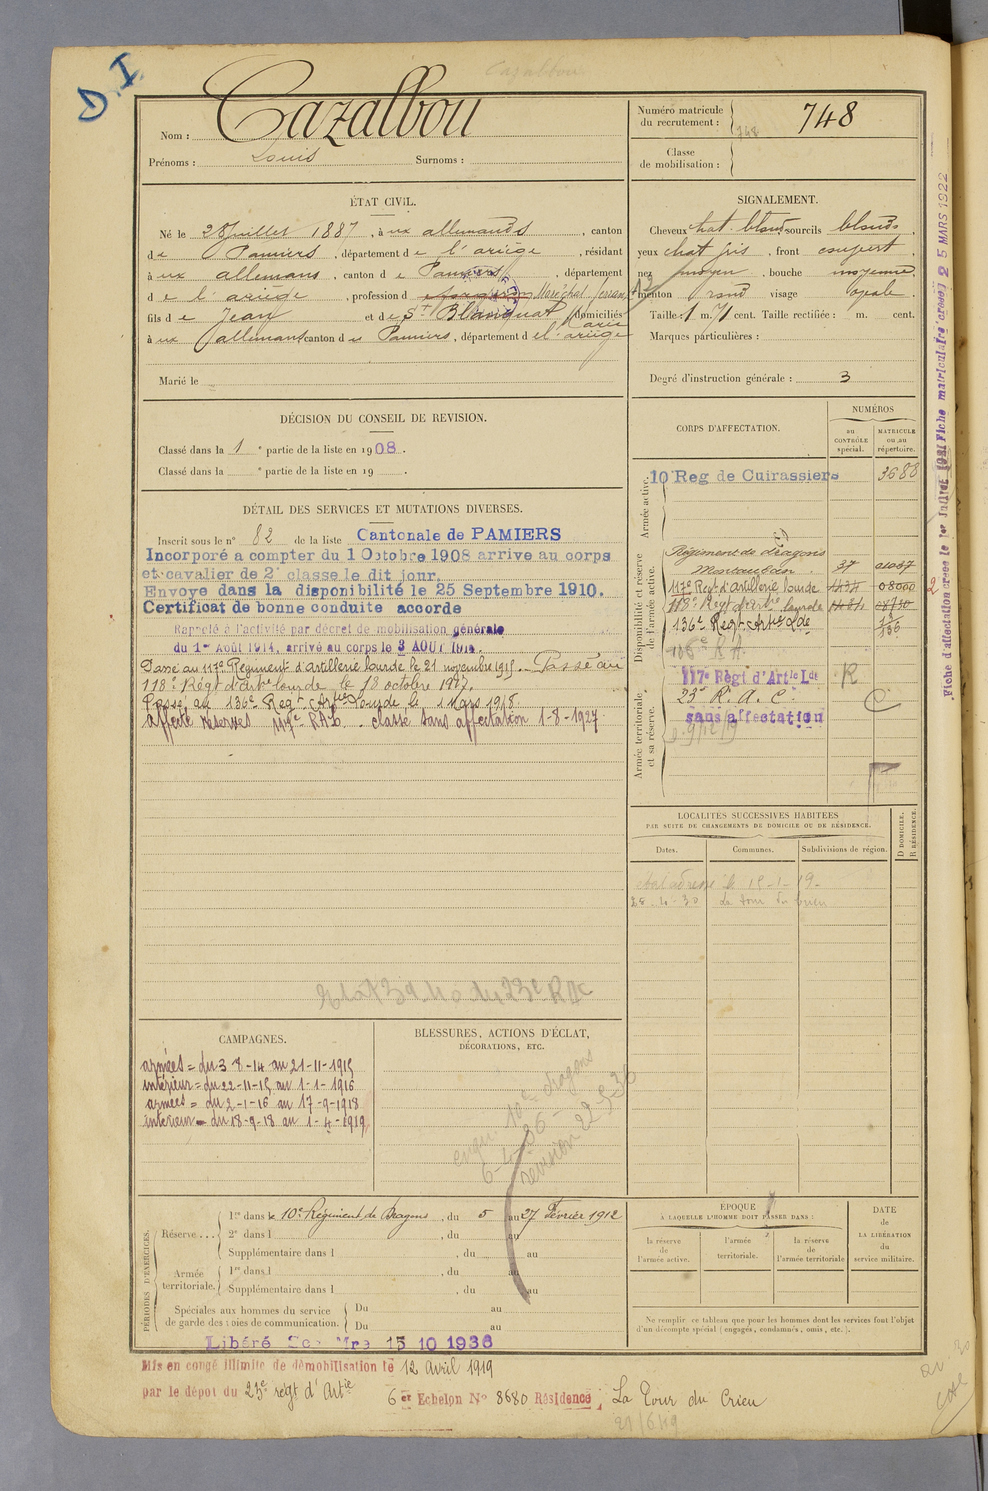 D. I.
Cazalbou
Nom : Cazalbou
Prénoms : Louis Surnoms :
Numéro matricule du recrutement : 748
748
Classe de mobilisation :
ÉTAT CIVIL.
Né le 28 Juillet 1887, à ux allemands, canton
de Pamiers, département de l'ariège, résidant
à ux allemans, canton de Pamiers, département
de l'ariège, profession de Maréchal ferran
fils de Jean et de St Blanquat Marie domiciliés
à ux allemans canton de Pamiers, département de l'ariège
Marié le
SIGNALEMENT.
Cheveux chat. blond sourcils blonds,
yeux chat gris, front couvert,
nez moyen, bouche moyenne,
menton rond visage ovale.
Taille : 1 m. 71 cent. Taille rectifiée : m. cent.
Marques particulières :
Degré d'instruction générale : 3
DÉCISION DU CONSEIL DE REVISION.
Classé dans la 1e partie de la liste en 1908.
Classé dans la e partie de la liste en 19 .
DÉTAIL DES SERVICES ET MUTATIONS DIVERSES.
Inscrit sous le n° 82 de la liste Cantonale de PAMIERS
Incorporé a compter du 1 Octobre 1908 arrive au corps
et cavalier de 2e classe le dit jour.
Envoye dans la disponibilité le 25 Septembre 1910.
Certificat de bonne conduite accorde
Rappelé à l'activité par décret de mobilisation générale
du 1er Août 1914, arrivé au corps le 3 AOUT 1914.
Passé au 117e Régiment d'artillerie lourde le 21 novembre 1915. Passé au
118e Régt d'art'e lourde le 18 octobre 1917.
Passé au 136e Regt Art'ie Lourde le 1 Mars 1918
affecté réserves 117e RAL. classé sans affectation 1-8-1927
CORPS D'AFFECTATION.
NUMÉROS
au CONTRÔLE spécial.
MATRICULE ou au répertoire.
Armée active.
10 Reg de Cuirassiers 3688
Disponibilité et réserve de l'armée active.
Régiment de dragons
Montauban. 37 01037
117e Regt d'artillerie lourde 08000
118e Regt d'artie lourde
136e Régt Artie Lde
106e R A.
117e Régt d'Artie Lde R
Armée territoriale et sa réserve.
23e R. A. C. C
sans affectation
LOCALITÉS SUCCESSIVES HABITÉES
PAR SUITE DE CHANGEMENTS DE DOMICILE OU DE RÉSIDENCE.
Dates. Communes. Subdivisions de région. D DOMICILE. R RÉSIDENCE.
28-4-30 La tour du Crieu
Fiche matriculaire créée 25 MARS 1922
Fiche d'affectation créée le 1er Juillet 1931
2
CAMPAGNES.
armées = du 3-8-14 au 21-11-1915
intérieur = du 22-11-15 au 1-1-1916
armées = du 2-1-16 au 17-9-1918
intérieur = du 18-9-18 au 1-4-1919
BLESSURES, ACTIONS D'ÉCLAT,
DÉCORATIONS, ETC.
10e dragons
6-4-36
révision
PÉRIODES D'EXERCICES.
Réserve...
1re dans le 10e Régiment de Dragons, du 5 au 27 Février 1912
2e dans l , du au
Supplémentaire dans l , du au
Armée territoriale.
1re dans l , du au
Supplémentaire dans l , du au
Spéciales aux hommes du service de garde des voies de communication.
Du au
Du au
Libéré Sce Mre 15 10 1936
EPOQUE
A LAQUELLE L'HOMME DOIT PASSER DANS :
la réserve de l'armée active.
l'armée territoriale.
la réserve de l'armée territoriale
DATE de LA LIBÉRATION du service militaire.
Ne remplir ce tableau que pour les hommes dont les services font l'objet
d'un décompte spécial (engagés, condamnés, omis, etc.).
Mis en congé illimité de démobilisation le 12 avril 1919
par le dépôt du 23e régt d'Artie 6er Echelon No 8680 Résidence, La Tour du Crieu